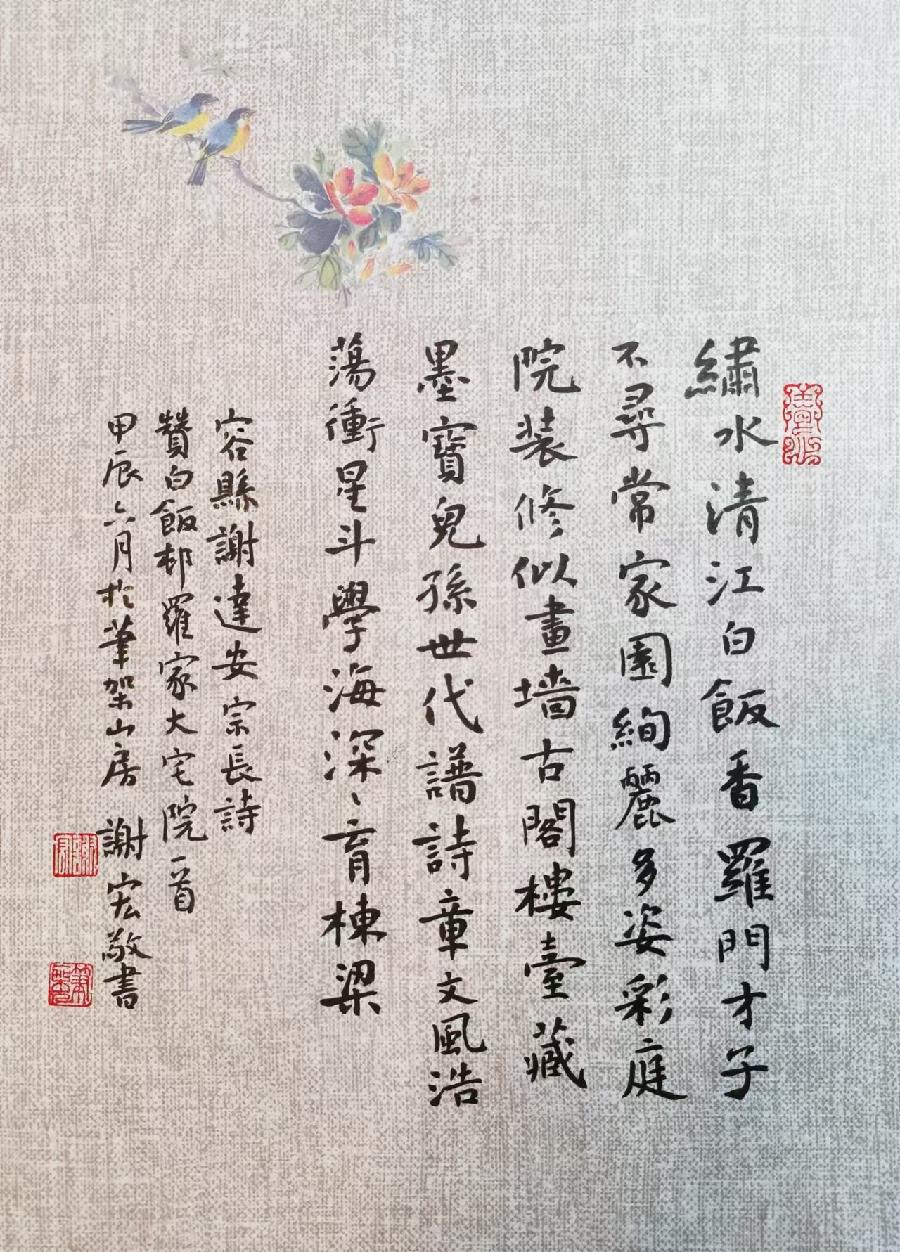 繡水清江白飯香羅門才子
不尋常家園絢麗多姿彩庭
院裝修似畫墻古閣樓臺藏
墨寶兒孫世代譜詩章文風浩
蕩衝星斗學海深、育棟梁
容縣謝達安宗長詩
贊白飯邨羅家大宅院一首
甲辰六月於筆架山房 謝宏敬書